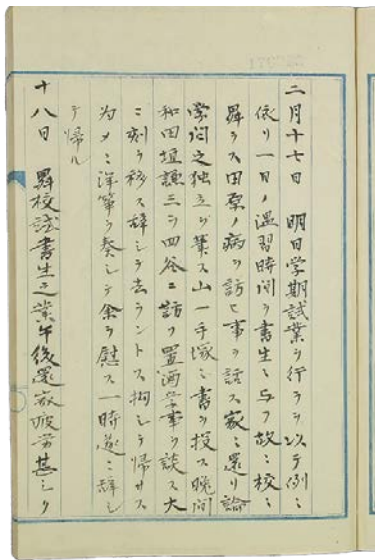 二月十七日 明日学期試業ヲ行フヲ以テ例ニ
依リ一日ノ温習時間ヲ書生ニ与フ故ニ校ニ
昇ラス田原ノ病ヲ訪ヒ事ヲ話ス家ニ還リ論
学問之独立ヲ草ス山一手塚ニ書ヲ投ス晩間
和田垣謙三ヲ四谷ニ訪フ置酒学事ヲ談ス大
ニ刻ヲ移ス辞シテ去ラントス拘シテ帰サス
為メニ洋箏ヲ奏シテ余ヲ慰ス一時遂ニ辞シ
テ帰ル
十八日 昇校試書生之業午後還家疲労甚シク